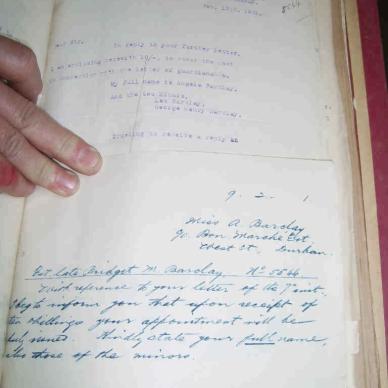 In reply to your further letter,
I am enclosing herewith 10/-, to cover the cost
in connection with the letter of guardianship.
My full name is Angela Barclay,
And the two Minors,
Leo Barclay,
George Henry Barclay.
Trusting to receive a reply an
9. 2. 1
Miss A Barclay
c/o Bon Marche Est
West St, Durban.
Est. late Bridget M. Barclay. No 5566
With reference to your letter of the 7th inst.
I beg to inform you that upon receipt of
ten shillings your appointment will be
issued. Kindly state your full name,
also those of the minors.